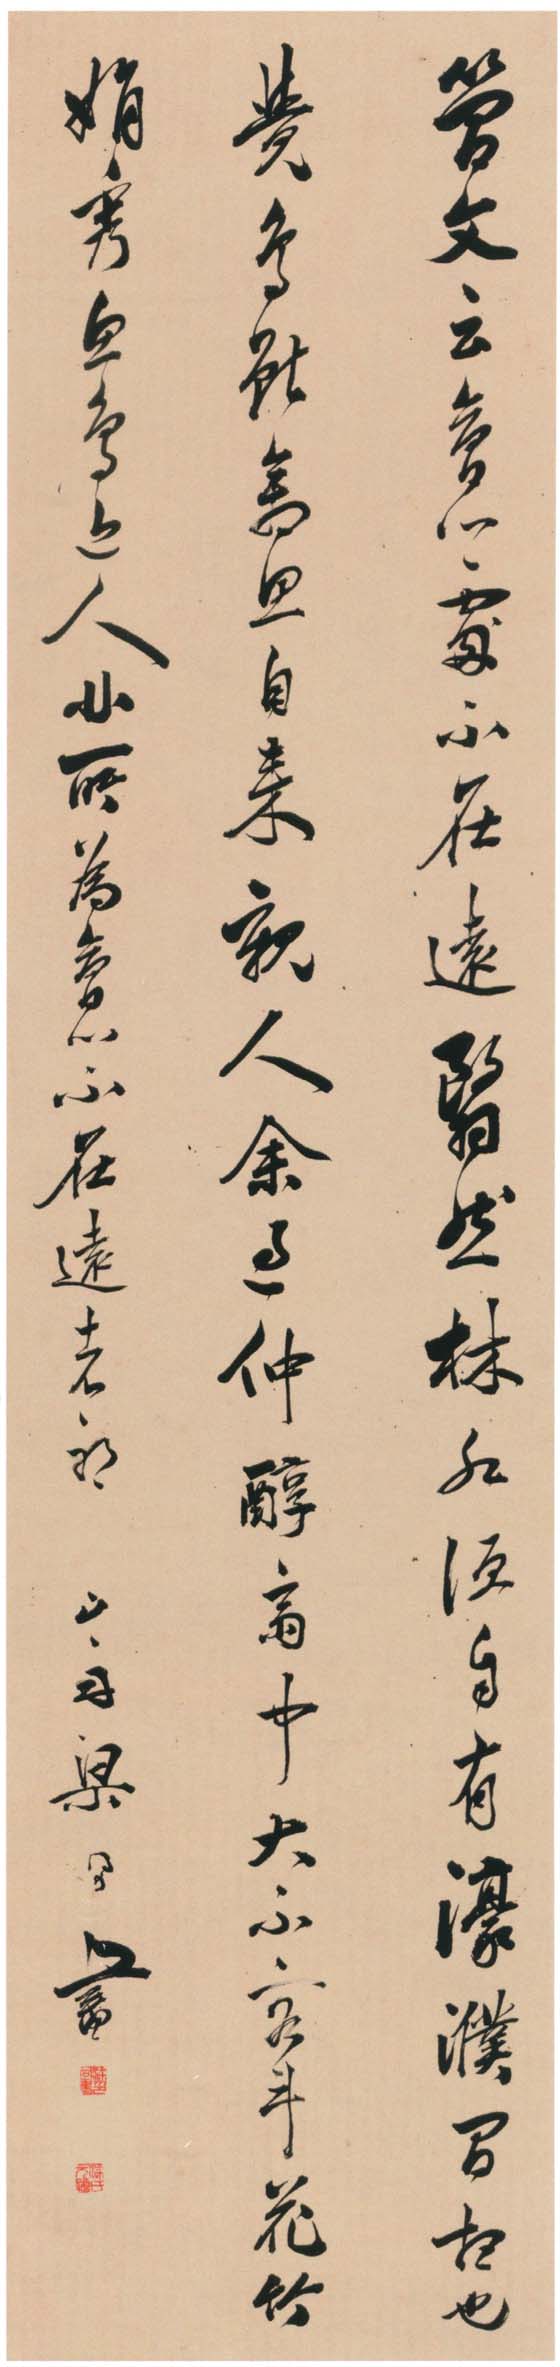 簡文云會心處不在遠翳然林水便自有濠濮間想也
覺鳥獸禽魚自來親人余過仲醇齋中大不容斗花竹
娟秀魚鳥近人非所為會心不在遠者耶 山舟梁同書